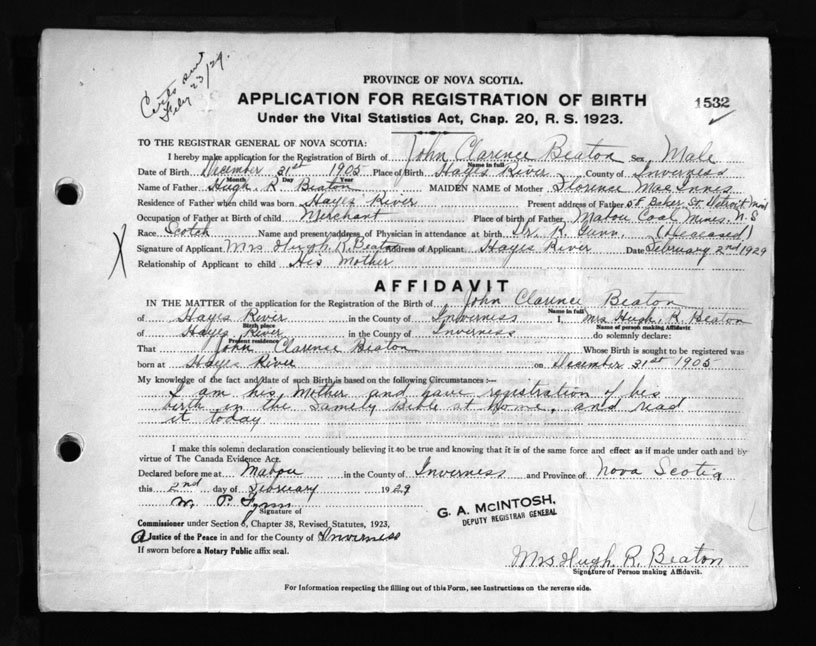 Certs sent
Feby 23/29.
PROVINCE OF NOVA SCOTIA.
APPLICATION FOR REGISTRATION OF BIRTH
1532
Under the Vital Statistics Act, Chap. 20, R. S. 1923.
TO THE REGISTRAR GENERAL OF NOVA SCOTIA:
I hereby make application for the Registration of Birth of John Clarence Beaton Sex Male
Name in full
Date of Birth December 31st 1905 Place of Birth Hayes River County of Inverness
Month Day Year
Name of Father Hugh R Beaton MAIDEN NAME of Mother Florence MacInnes
Residence of Father when child was born Hayes River Present address of Father 58 Baker St Detroit Mich
Occupation of Father at Birth of child Merchant Place of birth of Father Mabou Coal Mines N.S
Race Scotch Name and present address of Physician in attendance at birth Dr. K. Gunn. (Deceased)
Signature of Applicant Mrs Hugh R. Beaton Address of Applicant Hayes River Date February 2nd 1929
Relationship of Applicant to child His Mother
AFFIDAVIT
IN THE MATTER of the application for the Registration of the Birth of John Clarence Beaton
Name in full
of Hayes River in the County of Inverness I, Mrs Hugh. R. Beaton
Birth place Name of person making Affidavit
of Hayes River in the County of Inverness do solemnly declare:
Present residence
That John Clarence Beaton Whose Birth is sought to be registered was
born at Hayes River on December 31st 1905
My knowledge of the fact and date of such Birth is based on the following Circumstances :—
I am his Mother and have registration of his
birth in the Family Bible at Home, and read
it today
I make this solemn declaration conscientiously believing it to be true and knowing that it is of the same force and effect as if made under oath and by
virtue of The Canada Evidence Act.
Declared before me at Mabou in the County of Inverness and Province of Nova Scotia
this 2nd day of February 1929
M. P.
Signature of
G. A. McINTOSH,
DEPUTY REGISTRAR GENERAL
Commissioner under Section 6, Chapter 38, Revised Statutes, 1923,
a Justice of the Peace in and for the County of Inverness
If sworn before a Notary Public affix seal.
Mrs Hugh. R. Beaton
Signature of Person making Affidavit.
For Information respecting the filling out of this Form, see Instructions on the reverse side.